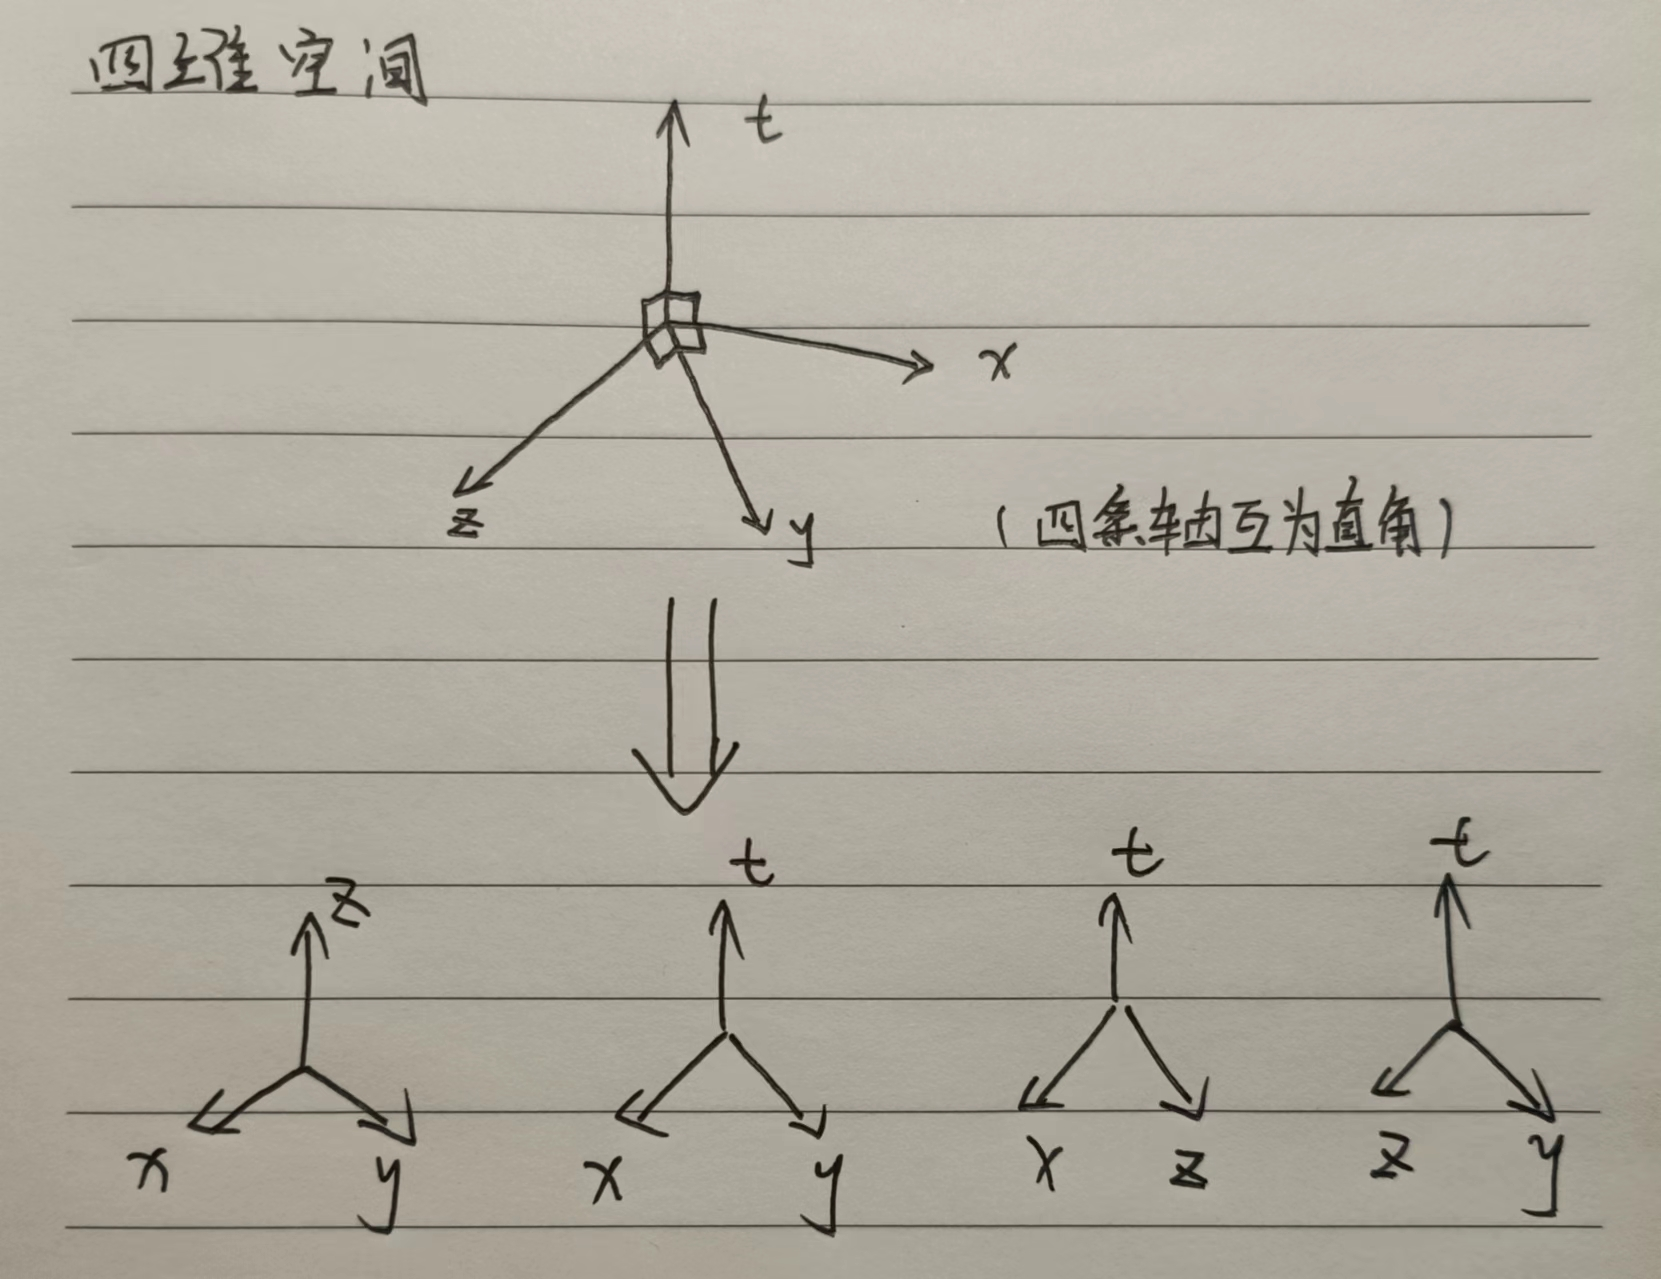 四维空间
t
x
z
y
(四条轴互为直角)
z
x y
t
x y
t
x z
t
z y